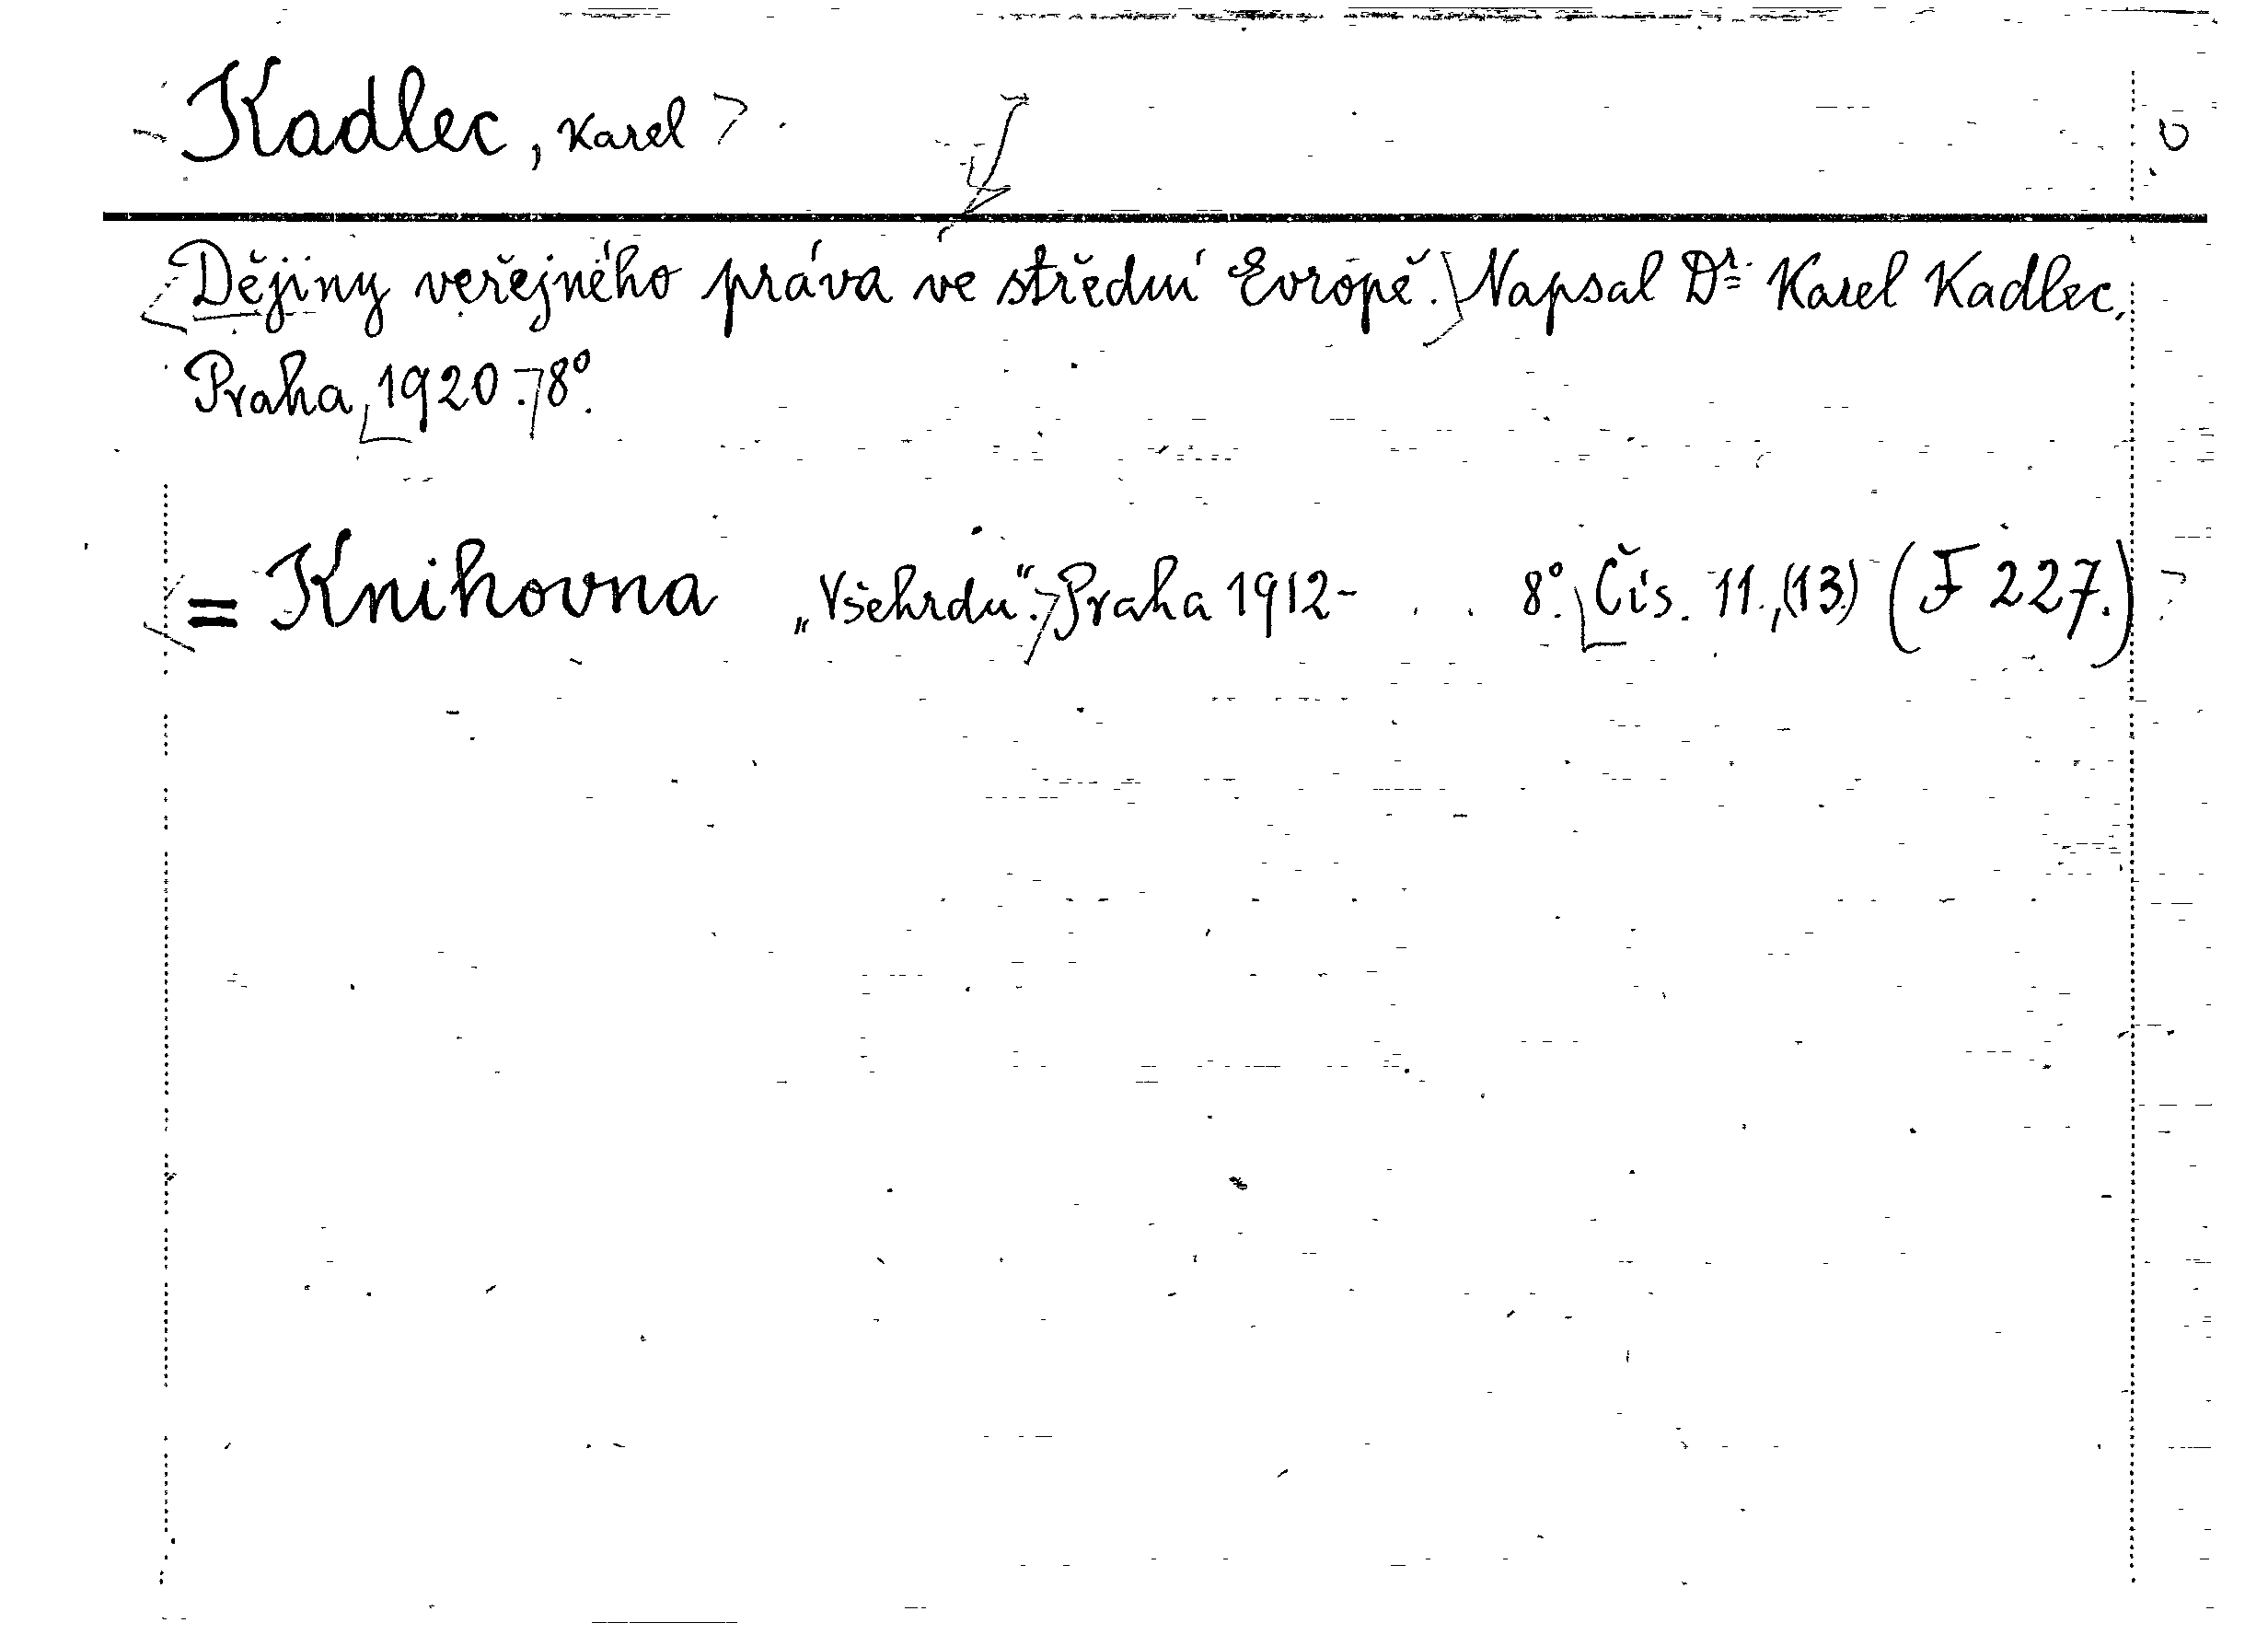 Kadlec, Karel
Dějiny veřejného práva ve střední Evropě. Napsal Dr. Karel Kadlec.
Praha, 1920. 8°.
= Knihovna „Všehrdu“. Praha 1912- . . 8°. Čís. 11.,(13.) (F 227.)